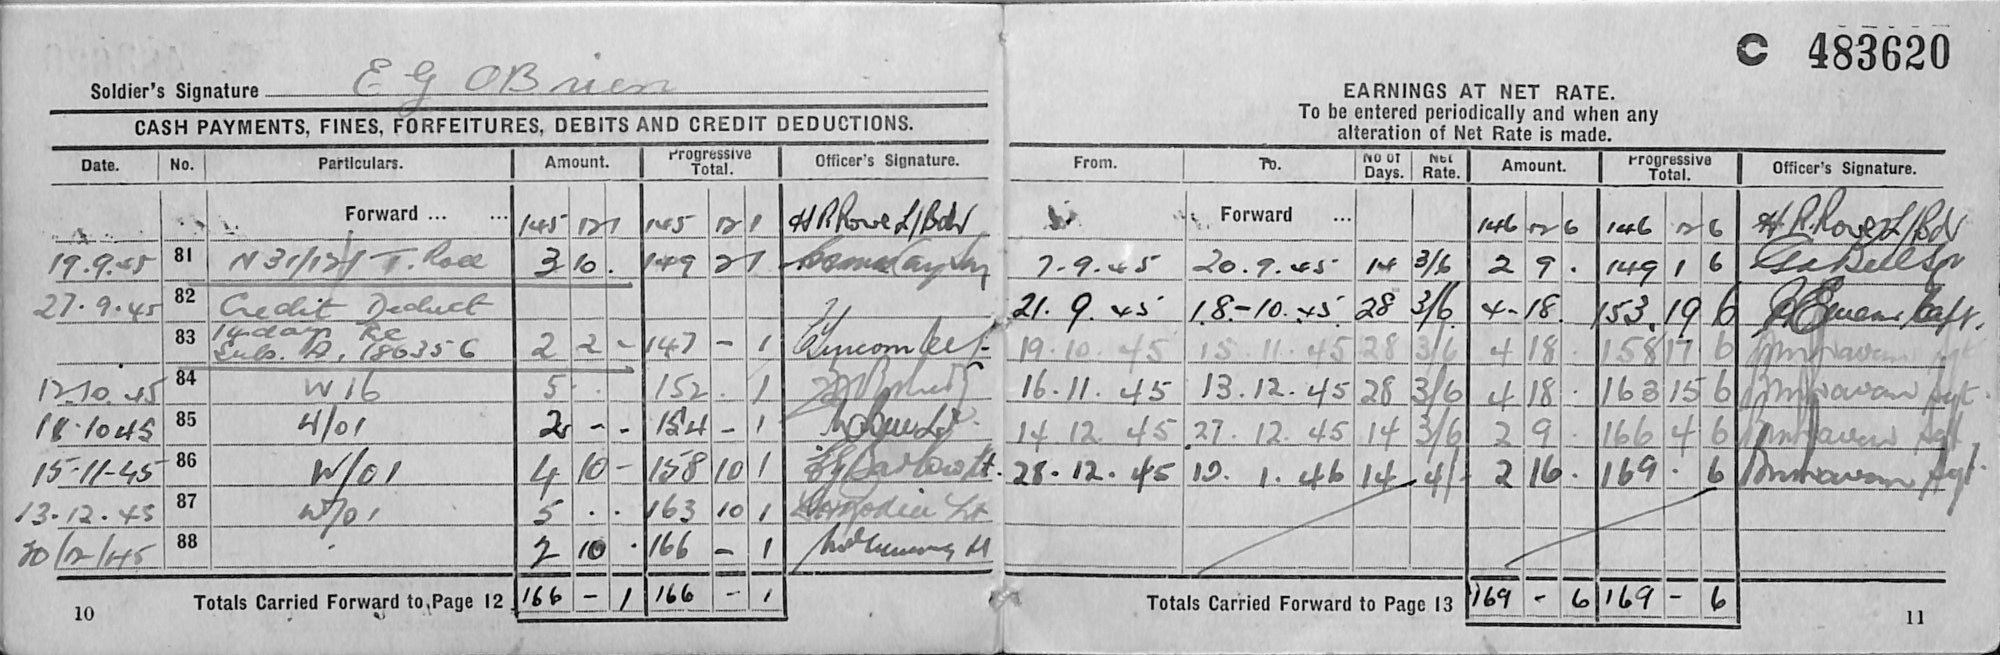 C 483620
Soldier's Signature E G OBrien
CASH PAYMENTS, FINES, FORFEITURES, DEBITS AND CREDIT DEDUCTIONS.
Date. No. Particulars. Amount. Progressive Total. Officer's Signature.
Forward ... ... 145 12 1 145 12 1 H R Rowe L/Bdr
19.9.45 81 N31/121 T. Roll 3 10 . 149 2 1
27.9.45 82 Credit Deduct
83 14 days
Sub. A, 186356 2 2 - 147 - 1
12.10.45 84 W16 5 . . 152 . 1
18.10.45 85 4/01 2 - - 154 - 1
15-11-45 86 W/01 4 10 - 158 10 1
13.12.45 87 W/01 5 . . 163 10 1
20/12/45 88 2 10 . 166 - 1
Totals Carried Forward to Page 12 166 - 1 166 - 1
10
EARNINGS AT NET RATE.
To be entered periodically and when any
alteration of Net Rate is made.
From. To. No of Days. Net Rate. Amount. Progressive Total. Officer's Signature.
Forward ... 146 12 6 146 12 6 H R. Rowe L/Bdr
7.9.45 20.9.45 14 3/6 2 9 . 149 1 6
21.9.45 18-10.45 28 3/6 4-18. 153.19 6 Capt.
19.10.45 15.11.45 28 3/6 4 18 . 158 17 6 Sgt
16.11.45 13.12.45 28 3/6 4 18 . 163 15 6 Sgt.
14.12.45 27.12.45 14 3/6 2 9 . 166 4 6 Sgt
28.12.45 10.1.46 14 4/- 2 16 . 169 . 6 Sgt.
Totals Carried Forward to Page 13 169 - 6 169 - 6
11